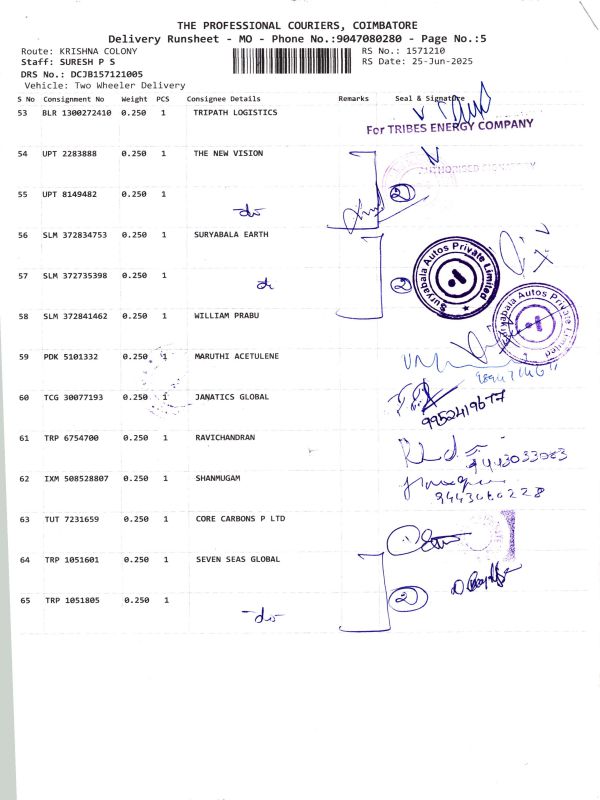 THE PROFESSIONAL COURIERS, COIMBATORE
Delivery Runsheet - MO - Phone No.:9047080280 - Page No.:5
Route: KRISHNA COLONY
RS No.: 1571210
Staff: SURESH P S
RS Date: 25-Jun-2025
DRS No.: DCJB157121005
Vehicle: Two Wheeler Delivery
S No Consignment No Weight PCS Consignee Details Remarks Seal & Signature
53 BLR 1300272410 0.250 1 TRIPATH LOGISTICS
For TRIBES ENERGY COMPANY
54 UPT 2283888 0.250 1 THE NEW VISION
AUTHORISED SIGNATORY
55 UPT 8149482 0.250 1
do 2
56 SLM 372834753 0.250 1 SURYABALA EARTH
Suryabala Autos Private Limited
57 SLM 372735398 0.250 1
do 2
Suryabala Autos Private Limited
58 SLM 372841462 0.250 1 WILLIAM PRABU
59 PDK 5101332 0.250 1 MARUTHI ACETULENE
60 TCG 30077193 0.250 1 JANATICS GLOBAL
9952419677
61 TRP 6754700 0.250 1 RAVICHANDRAN
62 IXM 508528807 0.250 1 SHANMUGAM
63 TUT 7231659 0.250 1 CORE CARBONS P LTD
64 TRP 1051601 0.250 1 SEVEN SEAS GLOBAL
65 TRP 1051805 0.250 1
do 2